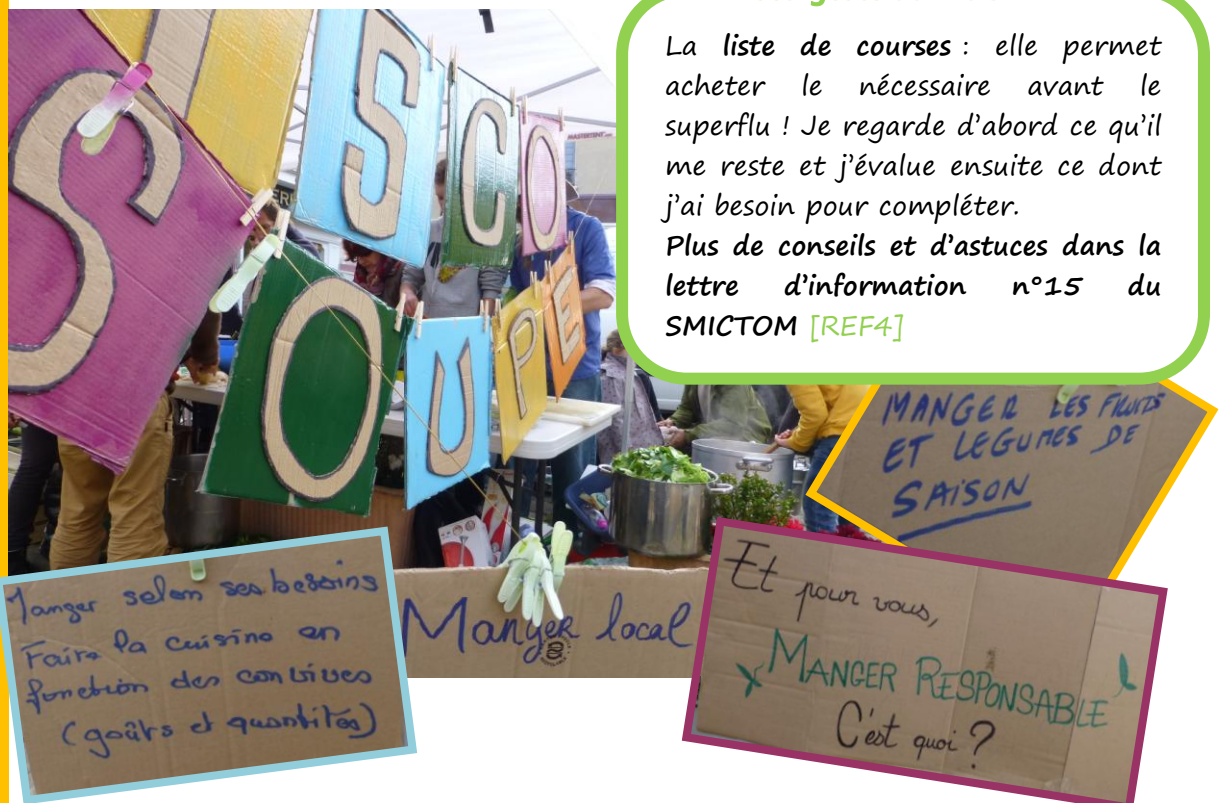 La liste de courses : elle permet
acheter le nécessaire avant le
superflu ! Je regarde d'abord ce qu'il
me reste et j'évalue ensuite ce dont
j'ai besoin pour compléter.
Plus de conseils et d'astuces dans la
lettre d'information n°15 du
SMICTOM [REF4]
ISCO
SOUPE
MANGER LES FRUITS
ET LEGUMES DE
SAISON
Manger selon ses besoins
Faire la cuisine en
fonction des convives
(goûts et quantités)
Manger local
Et pour vous,
MANGER RESPONSABLE
C'est quoi ?